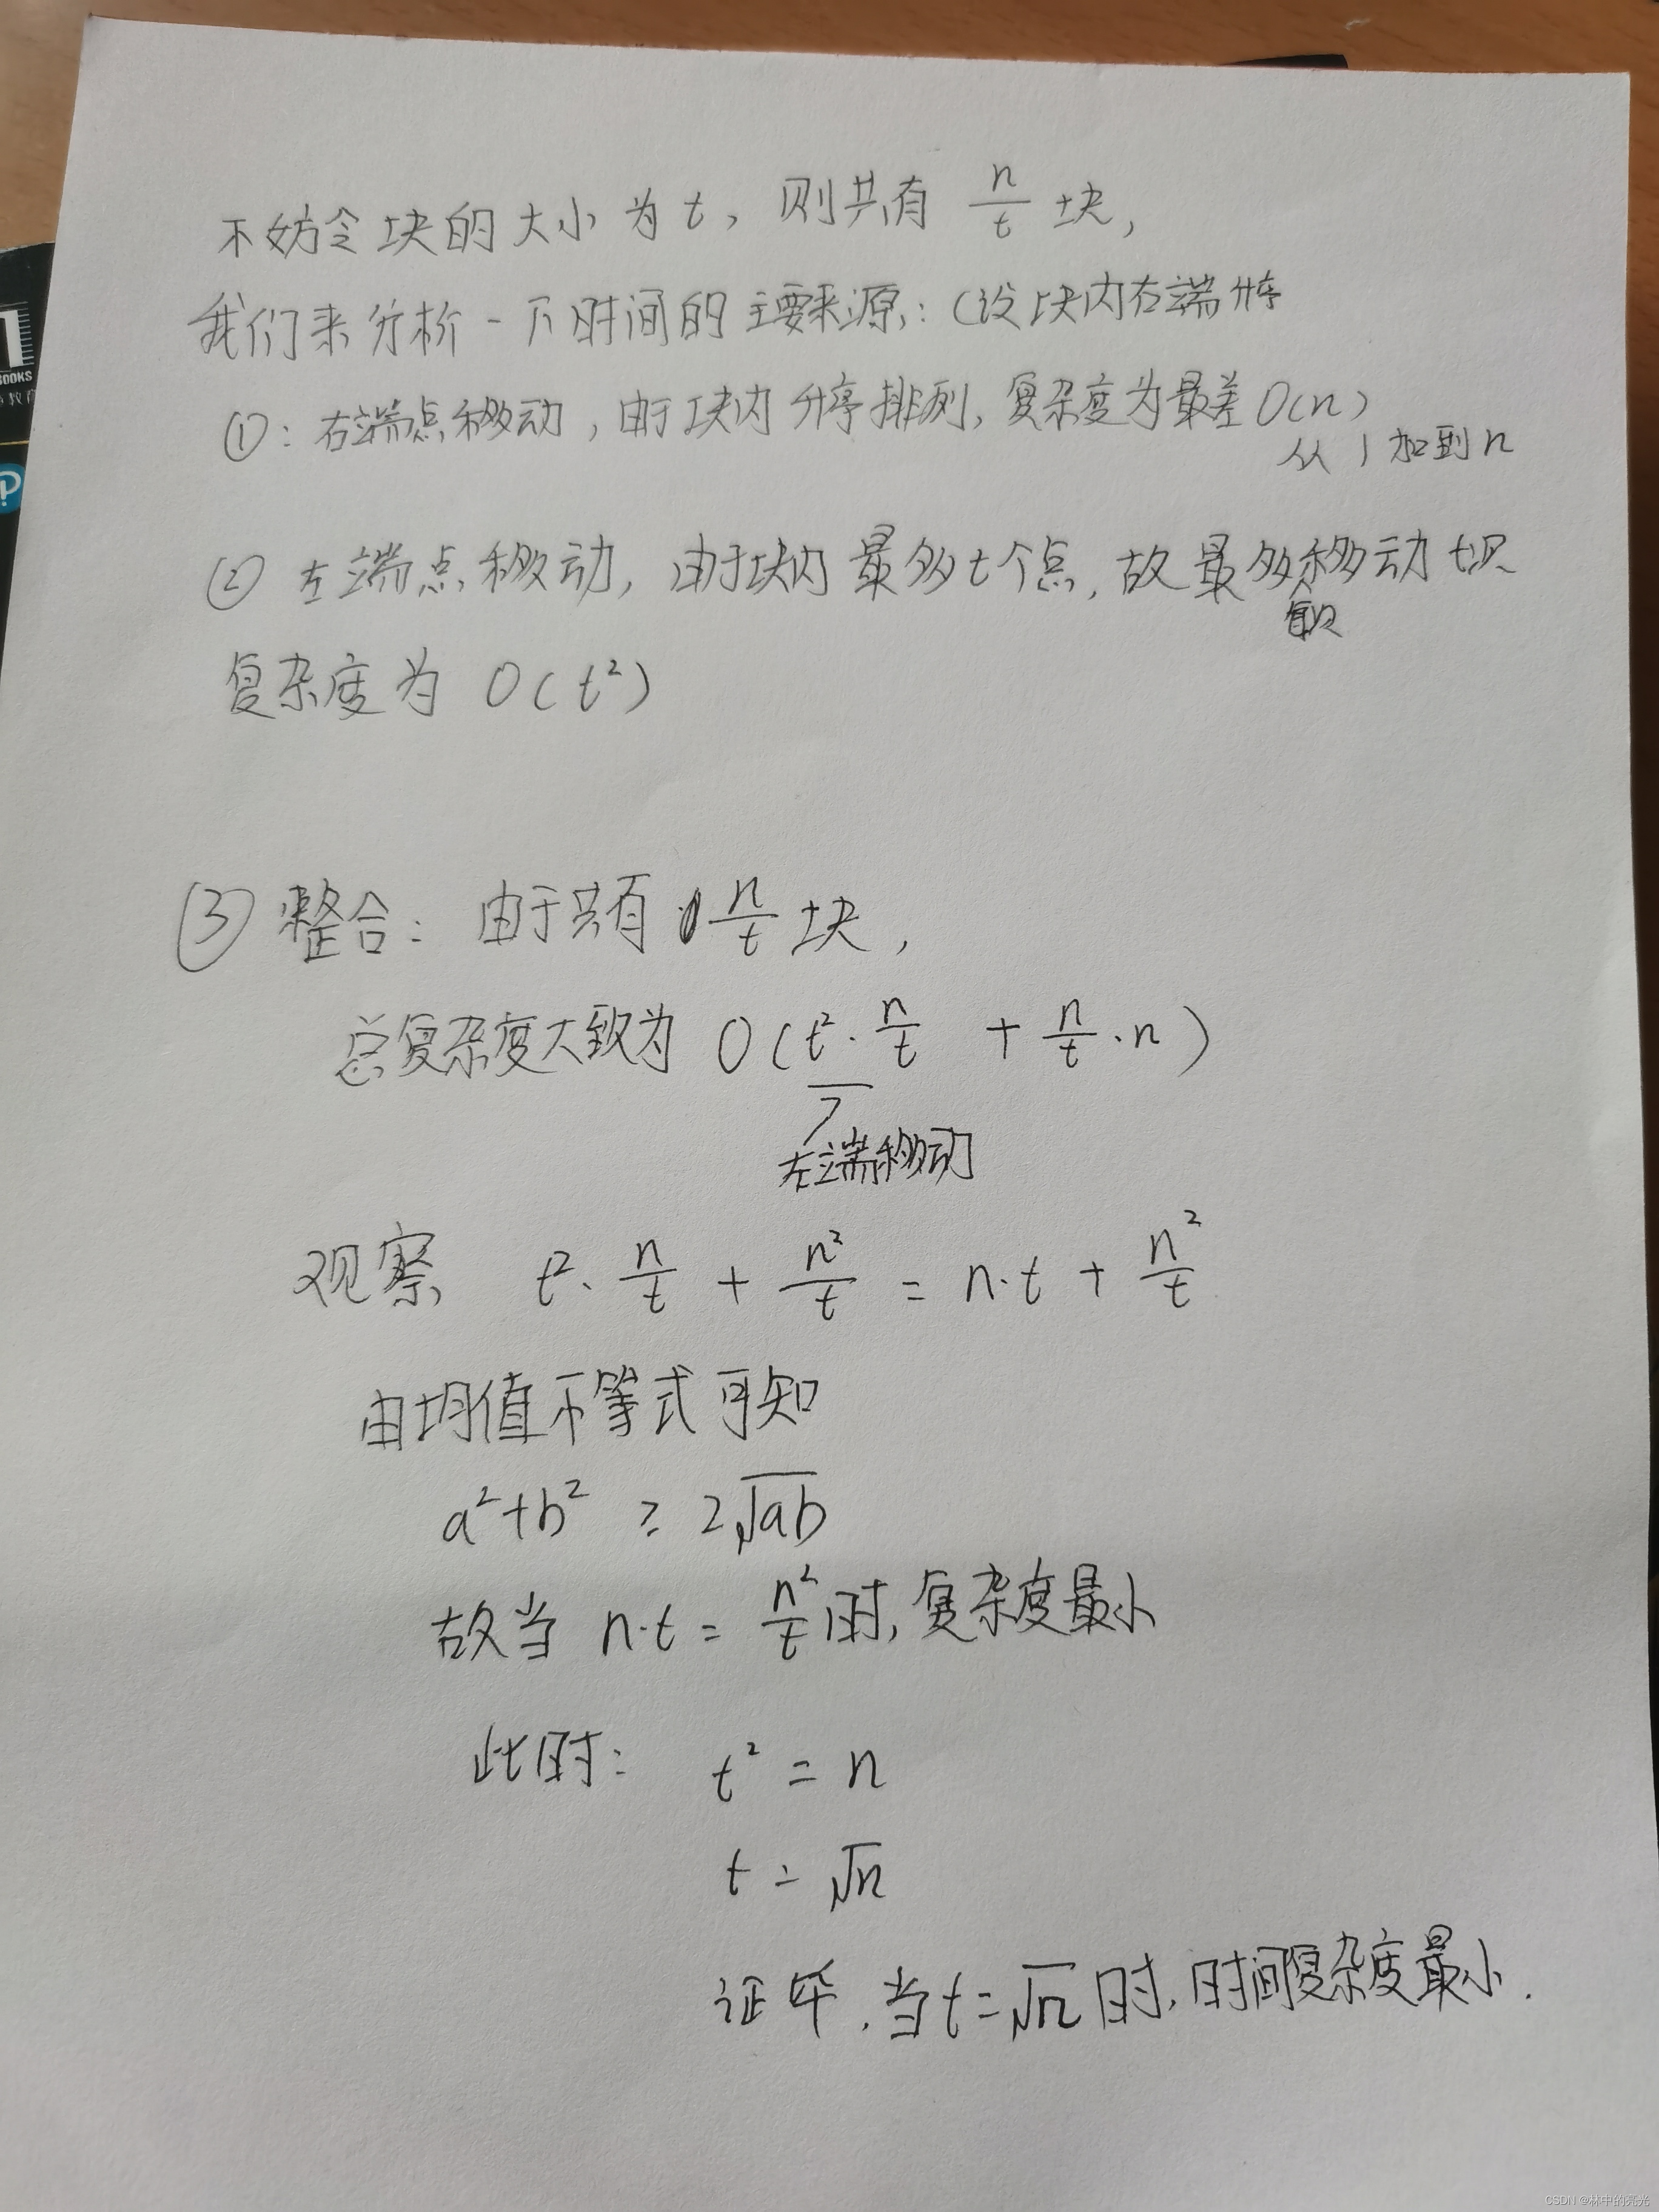 不妨令块的大小为t，则共有 n/t 块，
我们来分析一下时间的主要来源：(设块内右端升序
①：右端点移动，由于块内升序排列，复杂度为最差O(n)
从1加到n
② 左端点移动，由于块内最多t个点，故最多移动t次
每次
复杂度为 O(t²)
③ 整合：由于共有 n/t 块，
总复杂度大致为 O(t²·n/t + n/t·n)
左端移动
观察 t²·n/t + n²/t = n·t + n²/t
由均值不等式可知
a²+b² ≥ 2√ab
故当 n·t = n²/t 时，复杂度最小
此时： t² = n
t = √n
证毕，当t=√n时，时间复杂度最小．
BOOKS
CSDN @林中的亮光